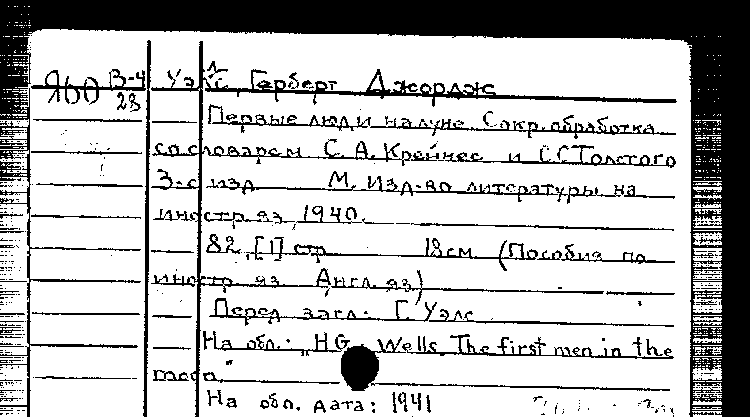 Я60 В-4 Уэллс, Герберт Джордж
28
Первые люди на луне. Сокр. обработка
со словарем С. А. Крейнес и С.С Толстого
3-е изд М. Изд-во литературы на
иностр яз, 1940.
82, [1] стр 18см. (Пособия по
иностр яз. Англ. яз)
Перед загл: Г. Уэлс
На обл.: „H.G. Wells. The first men in the
moon."
На обл. дата: 1941